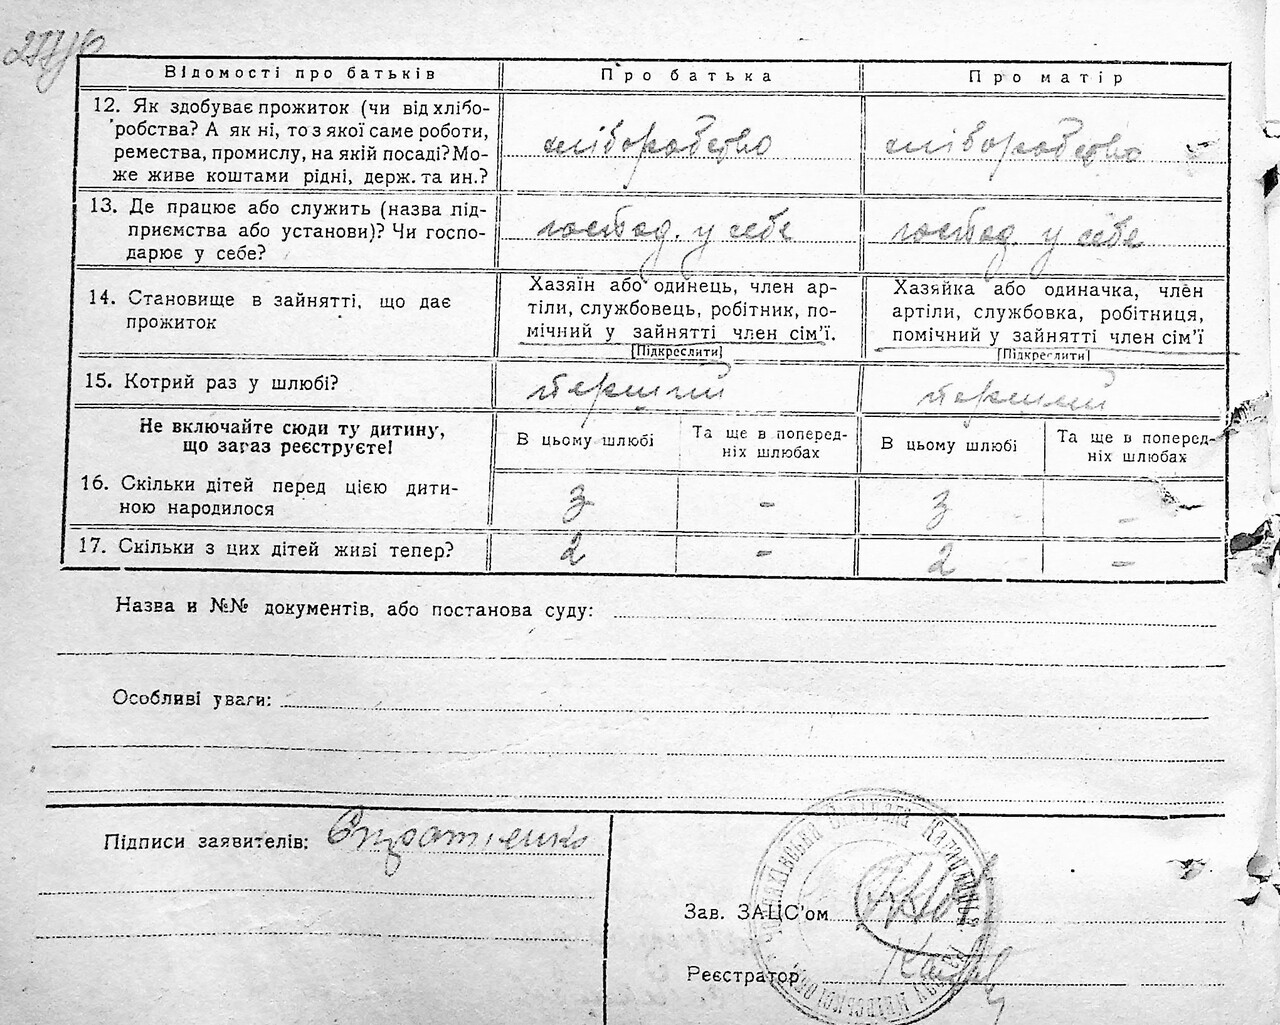 Відомості про батьків
Про батька
Про матір
12. Як здобуває прожиток (чи від хлібо-
робства? А як ні, то з якої саме роботи,
ремества, промислу, на якій посаді? Мо-
же живе коштами рідні, держ. та ин.?
хліборобство
хліборобство
13. Де працює або служить (назва під-
приємства або установи)? Чи госпо-
дарює у себе?
господ. у себе
господ. у себе
14. Становище в зайнятті, що дає
прожиток
Хазяїн або одинець, член ар-
тіли, службовець, робітник, по-
мічний у зайнятті член сім'ї.
[Підкреслити]
Хазяйка або одиначка, член
артіли, службовка, робітниця,
помічний у зайнятті член сім'ї
[Підкреслити]
15. Котрий раз у шлюбі?
перший
перший
Не включайте сюди ту дитину,
що зараз реєструєте!
В цьому шлюбі
Та ще в поперед-
ніх шлюбах
В цьому шлюбі
Та ще в поперед-
ніх шлюбах
16. Скільки дітей перед цією дити-
ною народилося
3 - 3 -
17. Скільки з цих дітей живі тепер?
2 - 2 -
Назва и №№ документів, або постанова суду:
Особливі уваги:
Підписи заявителів:
Зав. ЗАЦС'ом
Реєстратор